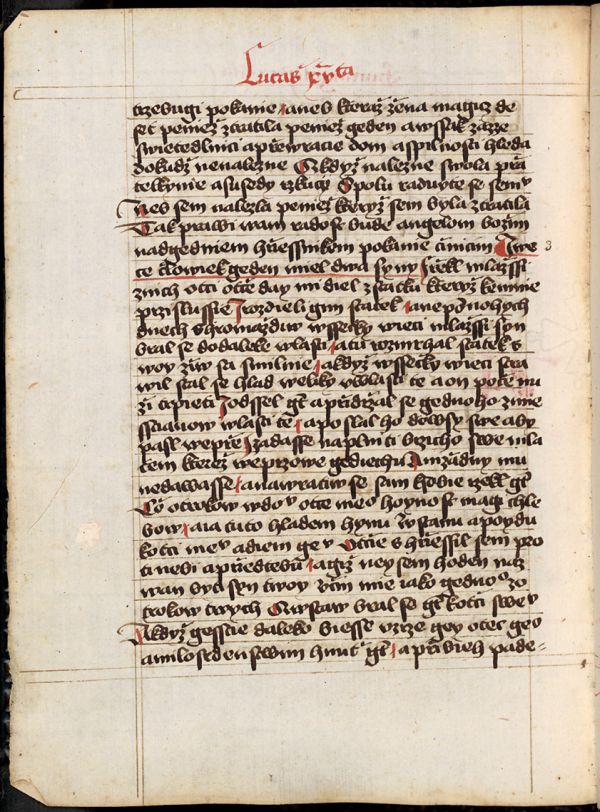 Lucas xvta
trzebugi pokanie a neb kteraz zena magicz de
set peniez ztratila peniez geden a wssak zazze
swietedlnici a prewracie dom a s pilnosti hleda
dokudz nenalezne A kdyz nalezne swola prza
telkynie a susedy rzkucz Spolu raduyte se semu
neb sem nalezla peniez kteryz sem byla ztratila
Tak prawi wam radost bude angelom bozim
nad gedniem hrziessnikem pokanie cinicim
3
te clowiek geden miel dwa syny I rzekl mlazssi
z nich otci otcze day mi diel z statku kteryz ke mnie
przislussie I rozdieli gim statek a ne po mnohych
dnech shromazdiw wssecky wieci mlazssi syn
bral se do daleke wlasti a tu rozmrhal statek s
woy ziw sa smilnie a kdyz wssecky wieci stra
wil stal se hlad weliky w wlasti te a on poce nu
zi trpieti I odssel gest a przidrzal se gednoho z mie
sstianow wlasti te a poslal ho do wsy swe aby
pasl weprze I zadasse naplniti brzicho swe mla
tem kterez weprzowe gediechu A nizadny mu
nedawasse a nawratiw se sam k sobie rzekl gest
Co otrokow w domu otce meho hoynost magi chle
bow a ia tuto hladem hynu Wstanu a poydu
k otci memu a diem gemu Otcze shrziessil sem pro
ti nebi a przed tebu a giz ney sem hoden naz
wan byti syn twoy vcin mie iako gednoho z o
trokow twych A wstaw bral se gest k otci swemu
A kdyz gesstie daleko biesse vzrze gey otec geho
a milosrdenstwim hnut gest a przibieh pade=